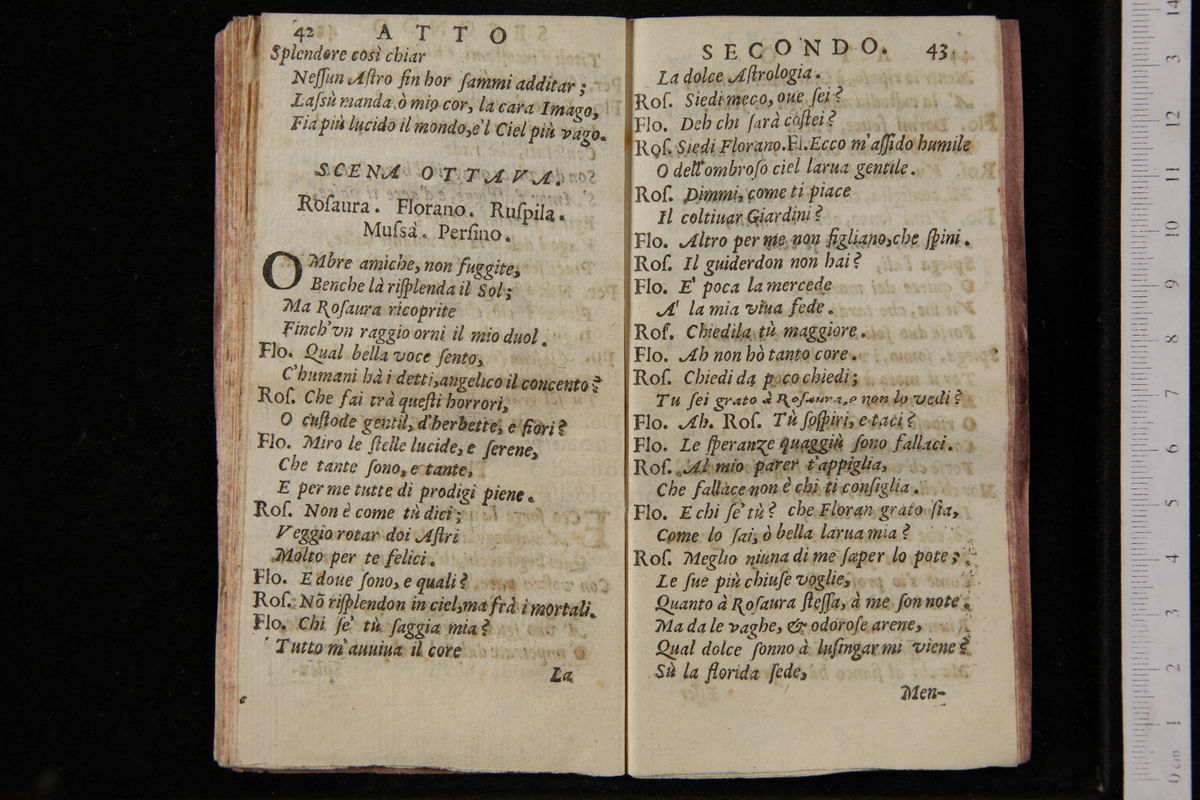 42 ATTO
Splendore così chiar
Neſſun Aſtro fin hor ſammi additar;
Laſsù manda ò mio cor, la cara Imago,
Fia più lucido il mondo, e'l Ciel più vago.
SCENA OTTAVA.
Roſaura. Florano. Ruſpila.
Muſsa. Perſino.
OMbre amiche, non fuggite,
Benche là riſplenda il Sol;
Ma Roſaura ricoprite
Finch'vn raggio orni il mio duol.
Flo. Qual bella voce ſento,
C'humani hà i detti, angelico il concento?
Roſ. Che fai trà queſti horrori,
O cuſtode gentil, d'herbette, e fiori?
Flo. Miro le ſtelle lucide, e ſerene,
Che tante ſono, e tante,
E per me tutte di prodigi piene.
Roſ. Non è come tù dici;
Veggio rotar doi Aſtri
Molto per te felici.
Flo. E doue ſono, e quali?
Roſ. Nõ riſplendon in ciel, ma frà i mortali.
Flo. Chi ſe' tù ſaggia mia?
Tutto m'auuiua il core
La
SECONDO. 43
La dolce Aſtrologia.
Roſ. Siedi meco, oue ſei?
Flo. Deh chi ſarà coſtei?
Roſ. Siedi Florano. Fl. Ecco m'aſſido humile
O dell'ombroſo ciel larua gentile.
Roſ. Dimmi, come ti piace
Il coltiuar Giardini?
Flo. Altro per me non figliano, che ſpini.
Roſ. Il guiderdon non hai?
Flo. E' poca la mercede
A' la mia viua fede.
Roſ. Chiedila tù maggiore.
Flo. Ah non hò tanto core.
Roſ. Chiedi da poco chiedi;
Tu ſei grato à Roſaura, e non lo vedi?
Flo. Ah. Roſ. Tù ſoſpiri, e taci?
Flo. Le ſperanze quaggiù ſono fallaci.
Roſ. Al mio parer t'appiglia,
Che fallace non è chi ti conſiglia.
Flo. E chi ſe' tù? che Floran grato ſia,
Come lo ſai, ò bella larua mia?
Roſ. Meglio niuna di me ſaper lo pote;
Le ſue più chiuſe voglie,
Quanto à Roſaura ſteſſa, à me ſon note.
Ma da le vaghe, & odoroſe arene,
Qual dolce ſonno à luſingar mi viene?
Sù la florida ſede,
Men-